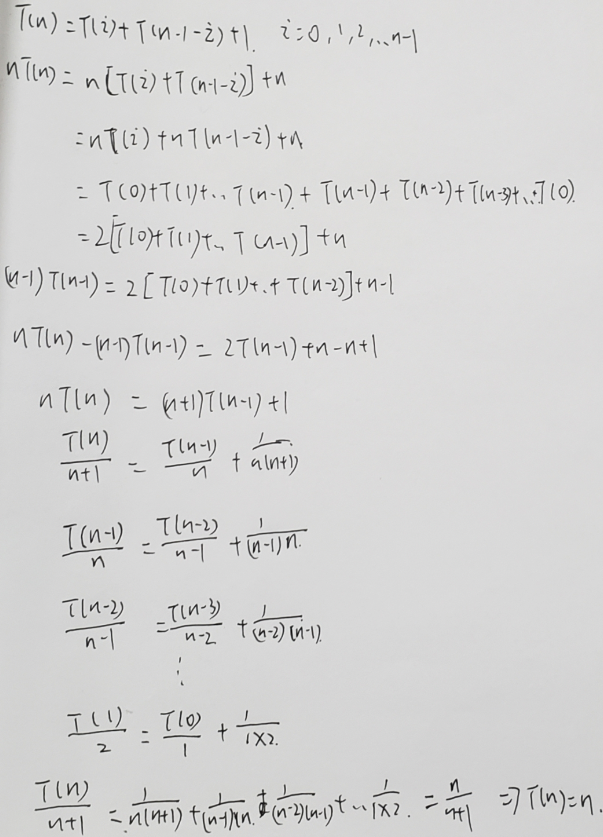 T(n) = T(i) + T(n-1-i) + 1. i = 0, 1, 2, ... n-1
nT(n) = n[T(i) + T(n-1-i)] + n
= nT(i) + nT(n-1-i) + n
= T(0) + T(1) + .. T(n-1) + T(n-1) + T(n-2) + T(n-3) + ... T(0)
= 2[T(0) + T(1) + .. T(n-1)] + n
(n-1)T(n-1) = 2[T(0) + T(1) + .. + T(n-2)] + n-1
nT(n) - (n-1)T(n-1) = 2T(n-1) + n - n + 1
nT(n) = (n+1)T(n-1) + 1
T(n)/(n+1) = T(n-1)/n + 1/(n(n+1))
T(n-1)/n = T(n-2)/(n-1) + 1/((n-1)n)
T(n-2)/(n-1) = T(n-3)/(n-2) + 1/((n-2)(n-1))
⋮
T(1)/2 = T(0)/1 + 1/(1×2)
T(n)/(n+1) = 1/(n(n+1)) + 1/((n-1)×n) + 1/((n-2)(n-1)) + ... 1/(1×2) = n/(n+1) => T(n) = n.